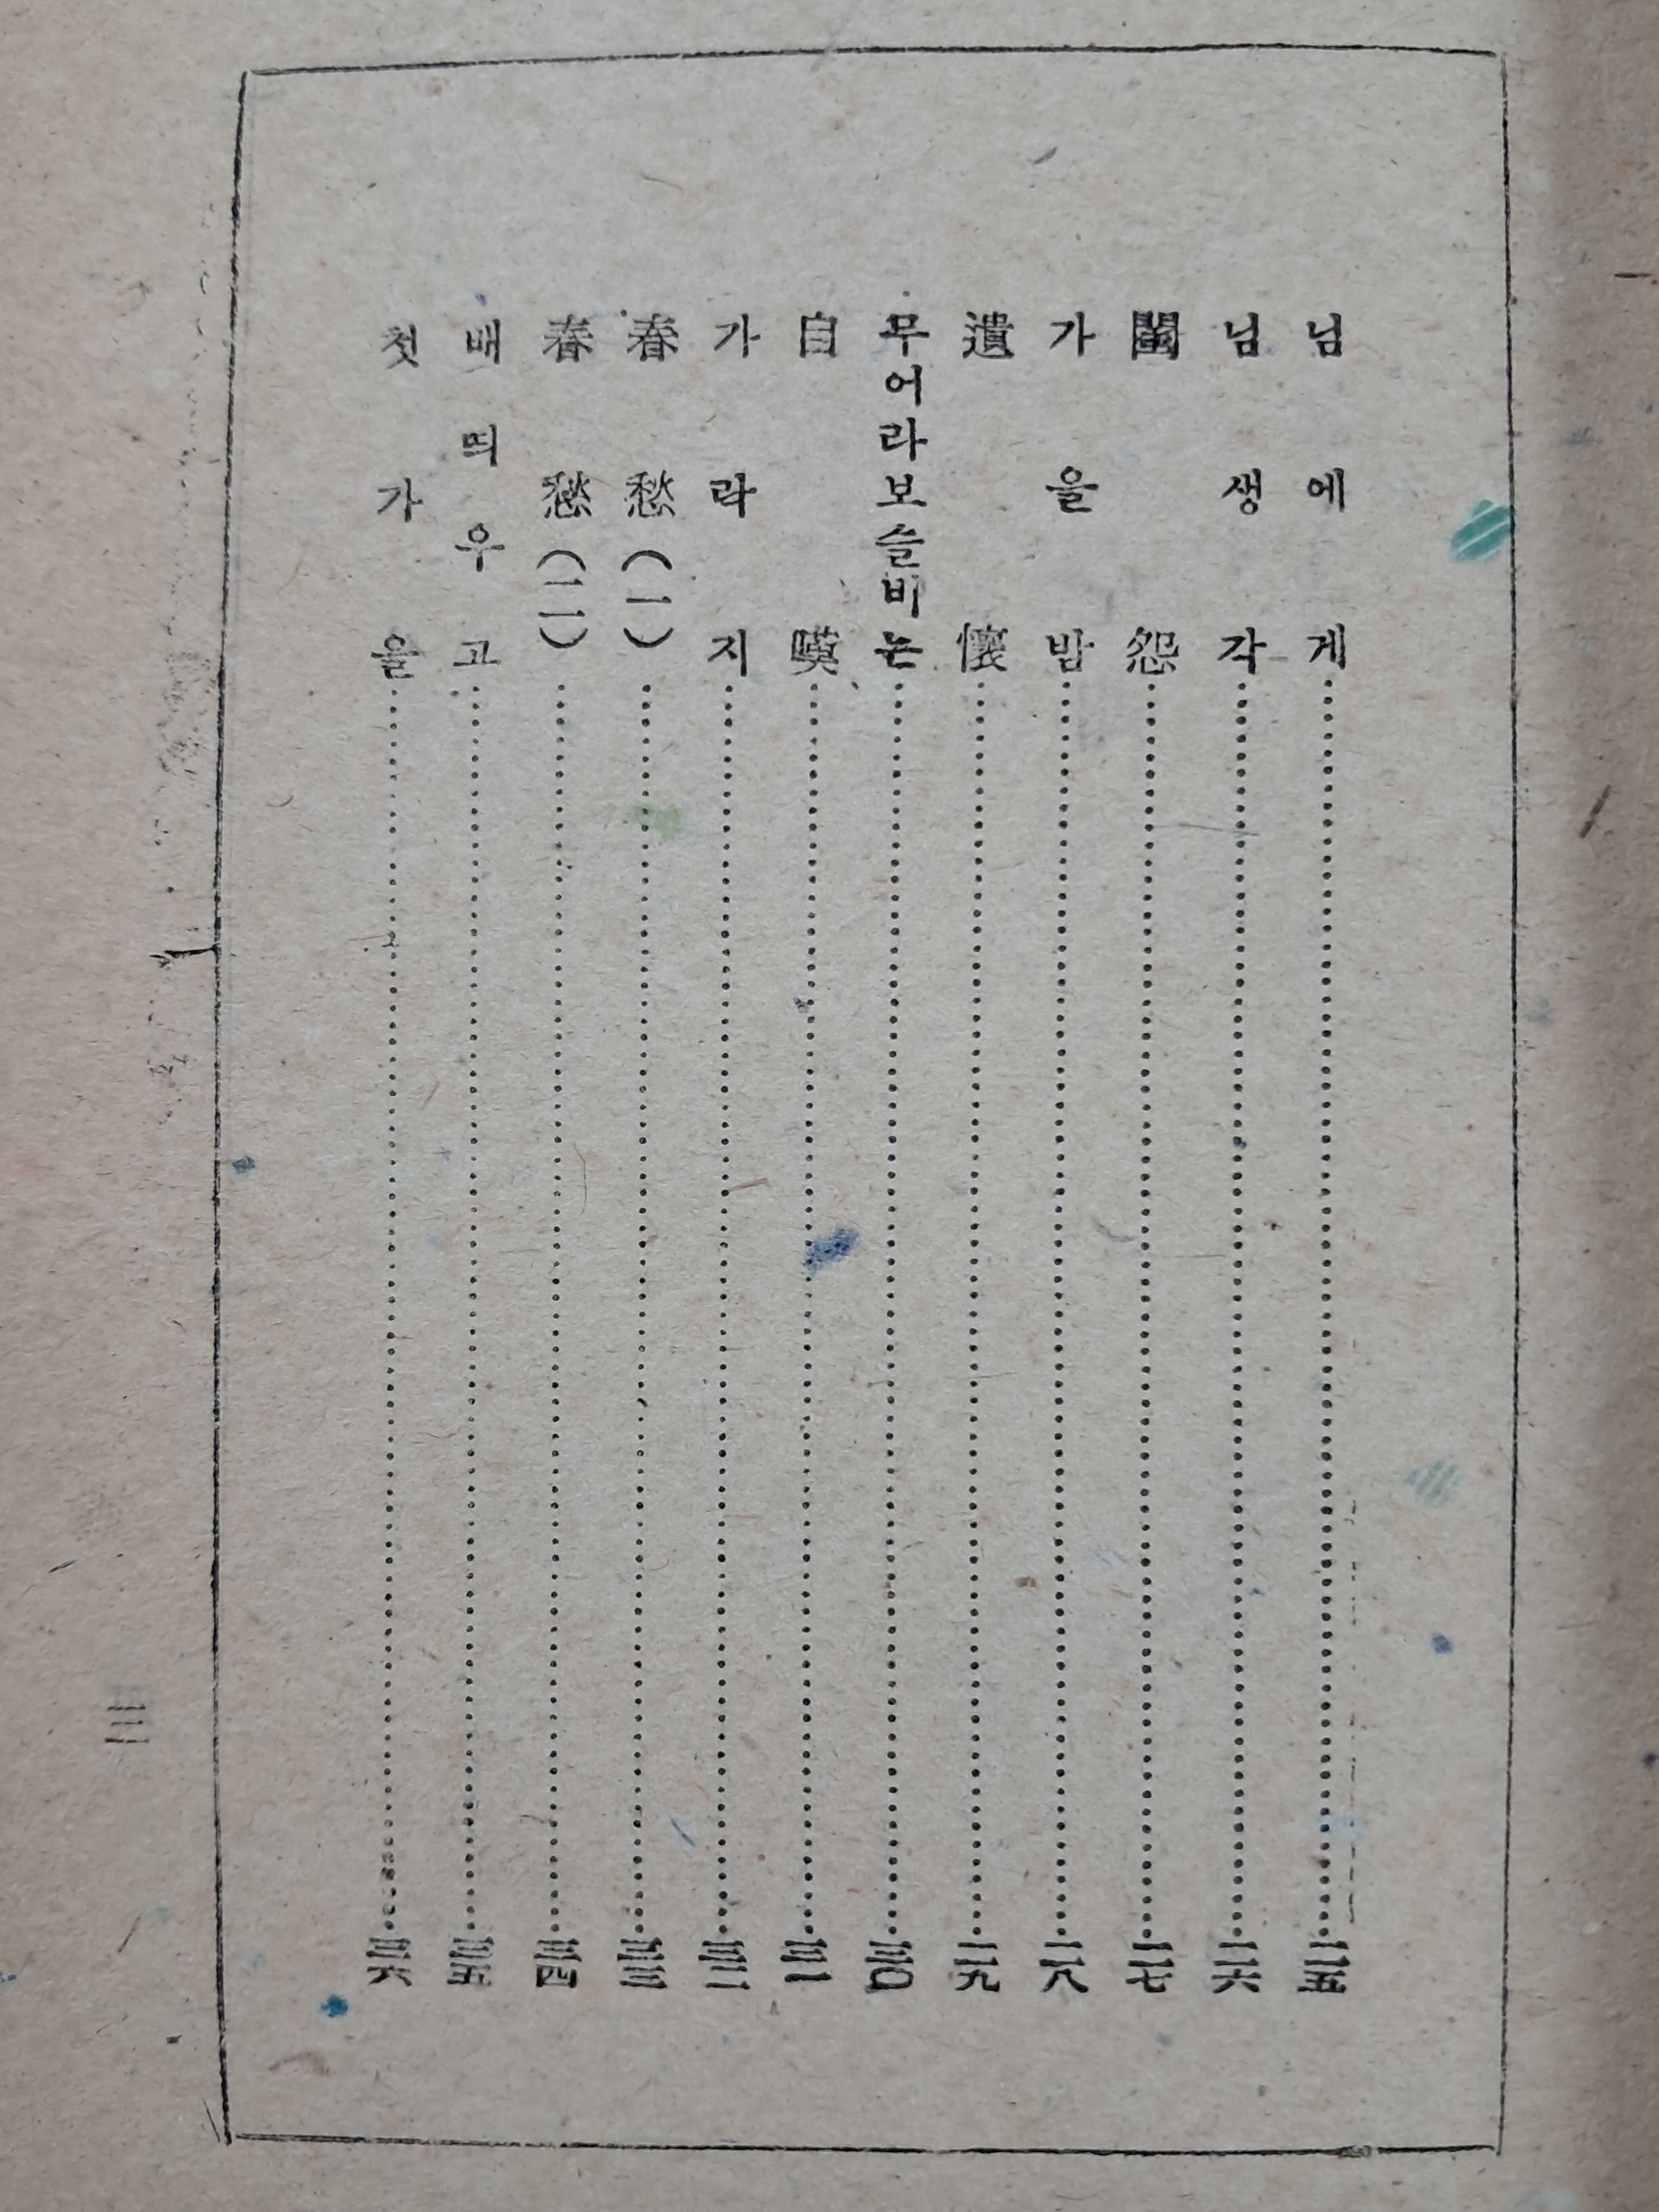 님에게……二五
님생각……二六
閨怨……二七
가을밤……二八
遺懷……二九
무어라보슬비는……三〇
自嘆……三一
가락지……三二
春愁(一)……三三
春愁(二)……三四
배띄우고……三五
첫가을……三六
三